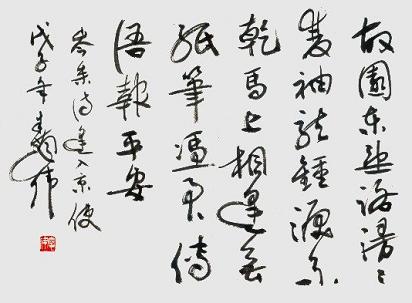 故園东望路漫〻
雙袖龍鍾淚不
乾馬上相逢無
紙筆憑君傳
語報平安
岑参诗逢入京使
戊子年